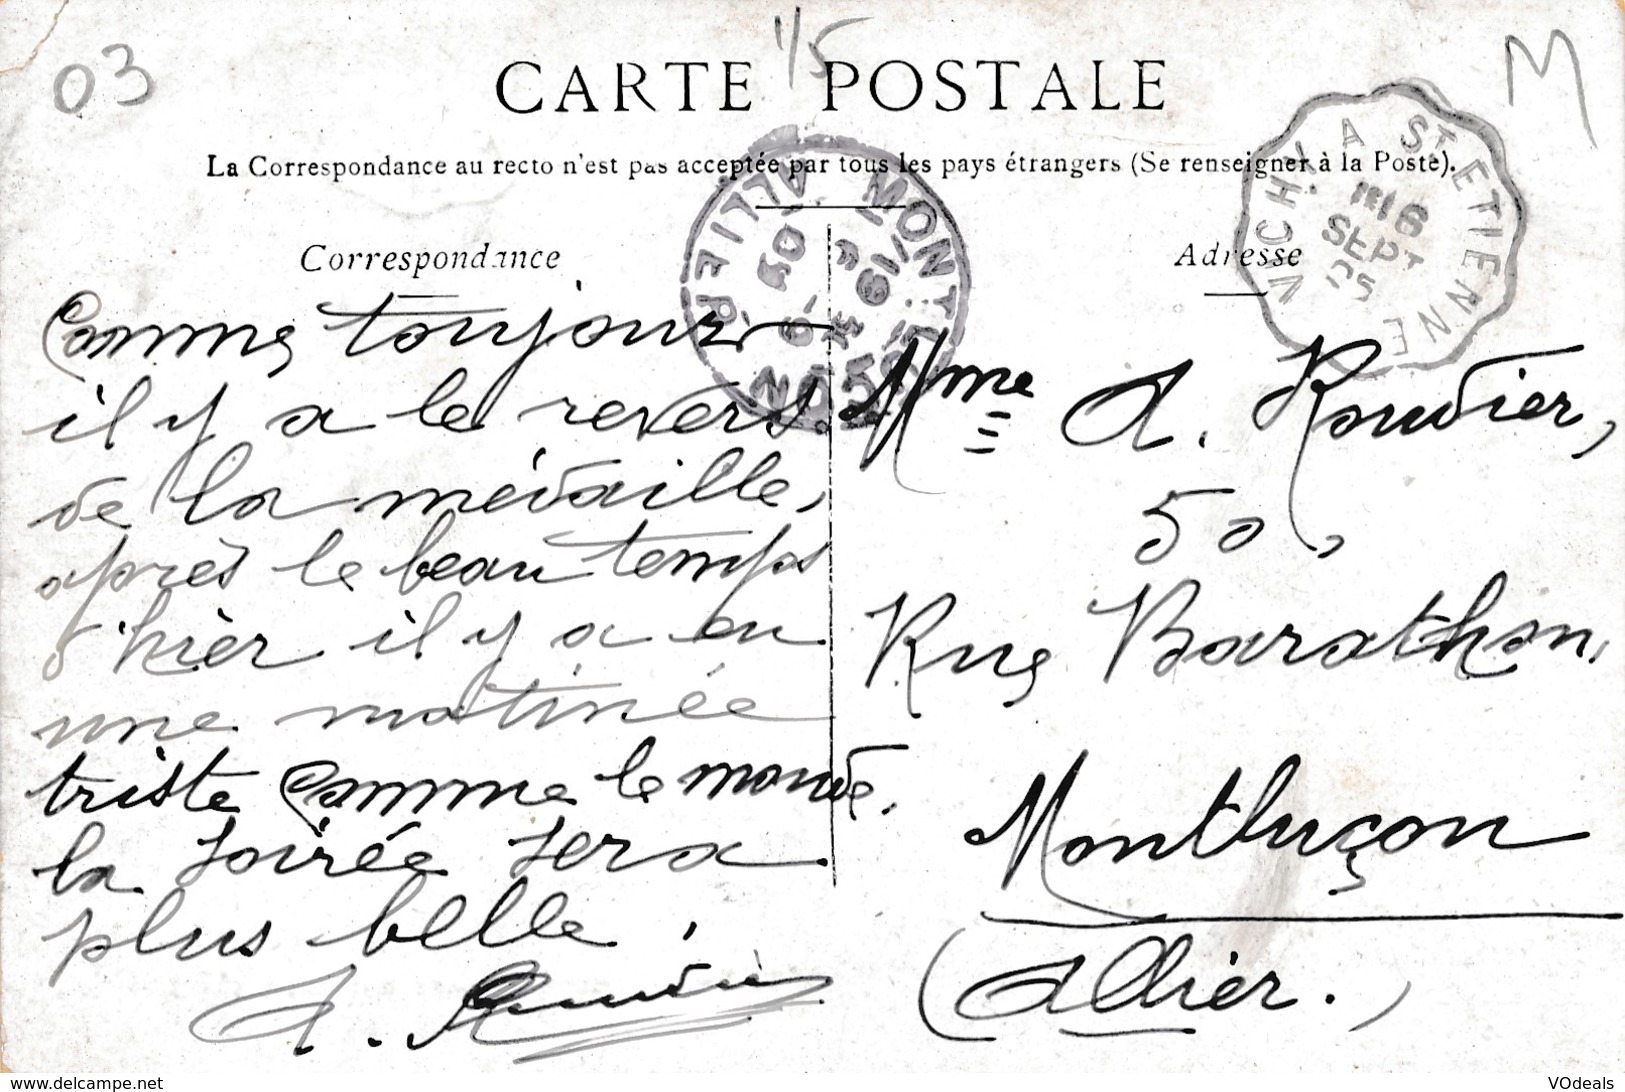 03
1/5
M
CARTE POSTALE
La Correspondance au recto n'est pas acceptée par tous les pays étrangers (Se renseigner à la Poste).
Correspondance
Comme toujours
il y a le revers
de la médaille,
après le beau temps
d'hier il y a eu
une matinée
triste comme le monde.
la soirée sera
plus belle.
A. Roudier
Adresse
Mme A. Roudier,
50,
Rue Barathon,
Montluçon
(Allier.)
MONTLUÇON
ALLIER
VICHY A ST ETIENNE
16
SEPT
www.delcampe.net
VOdeals